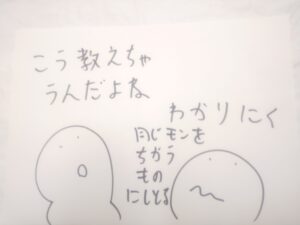 こう教えちゃ
うんだよね
わかりにく
同じモンを
ちがう
もの
にしとる